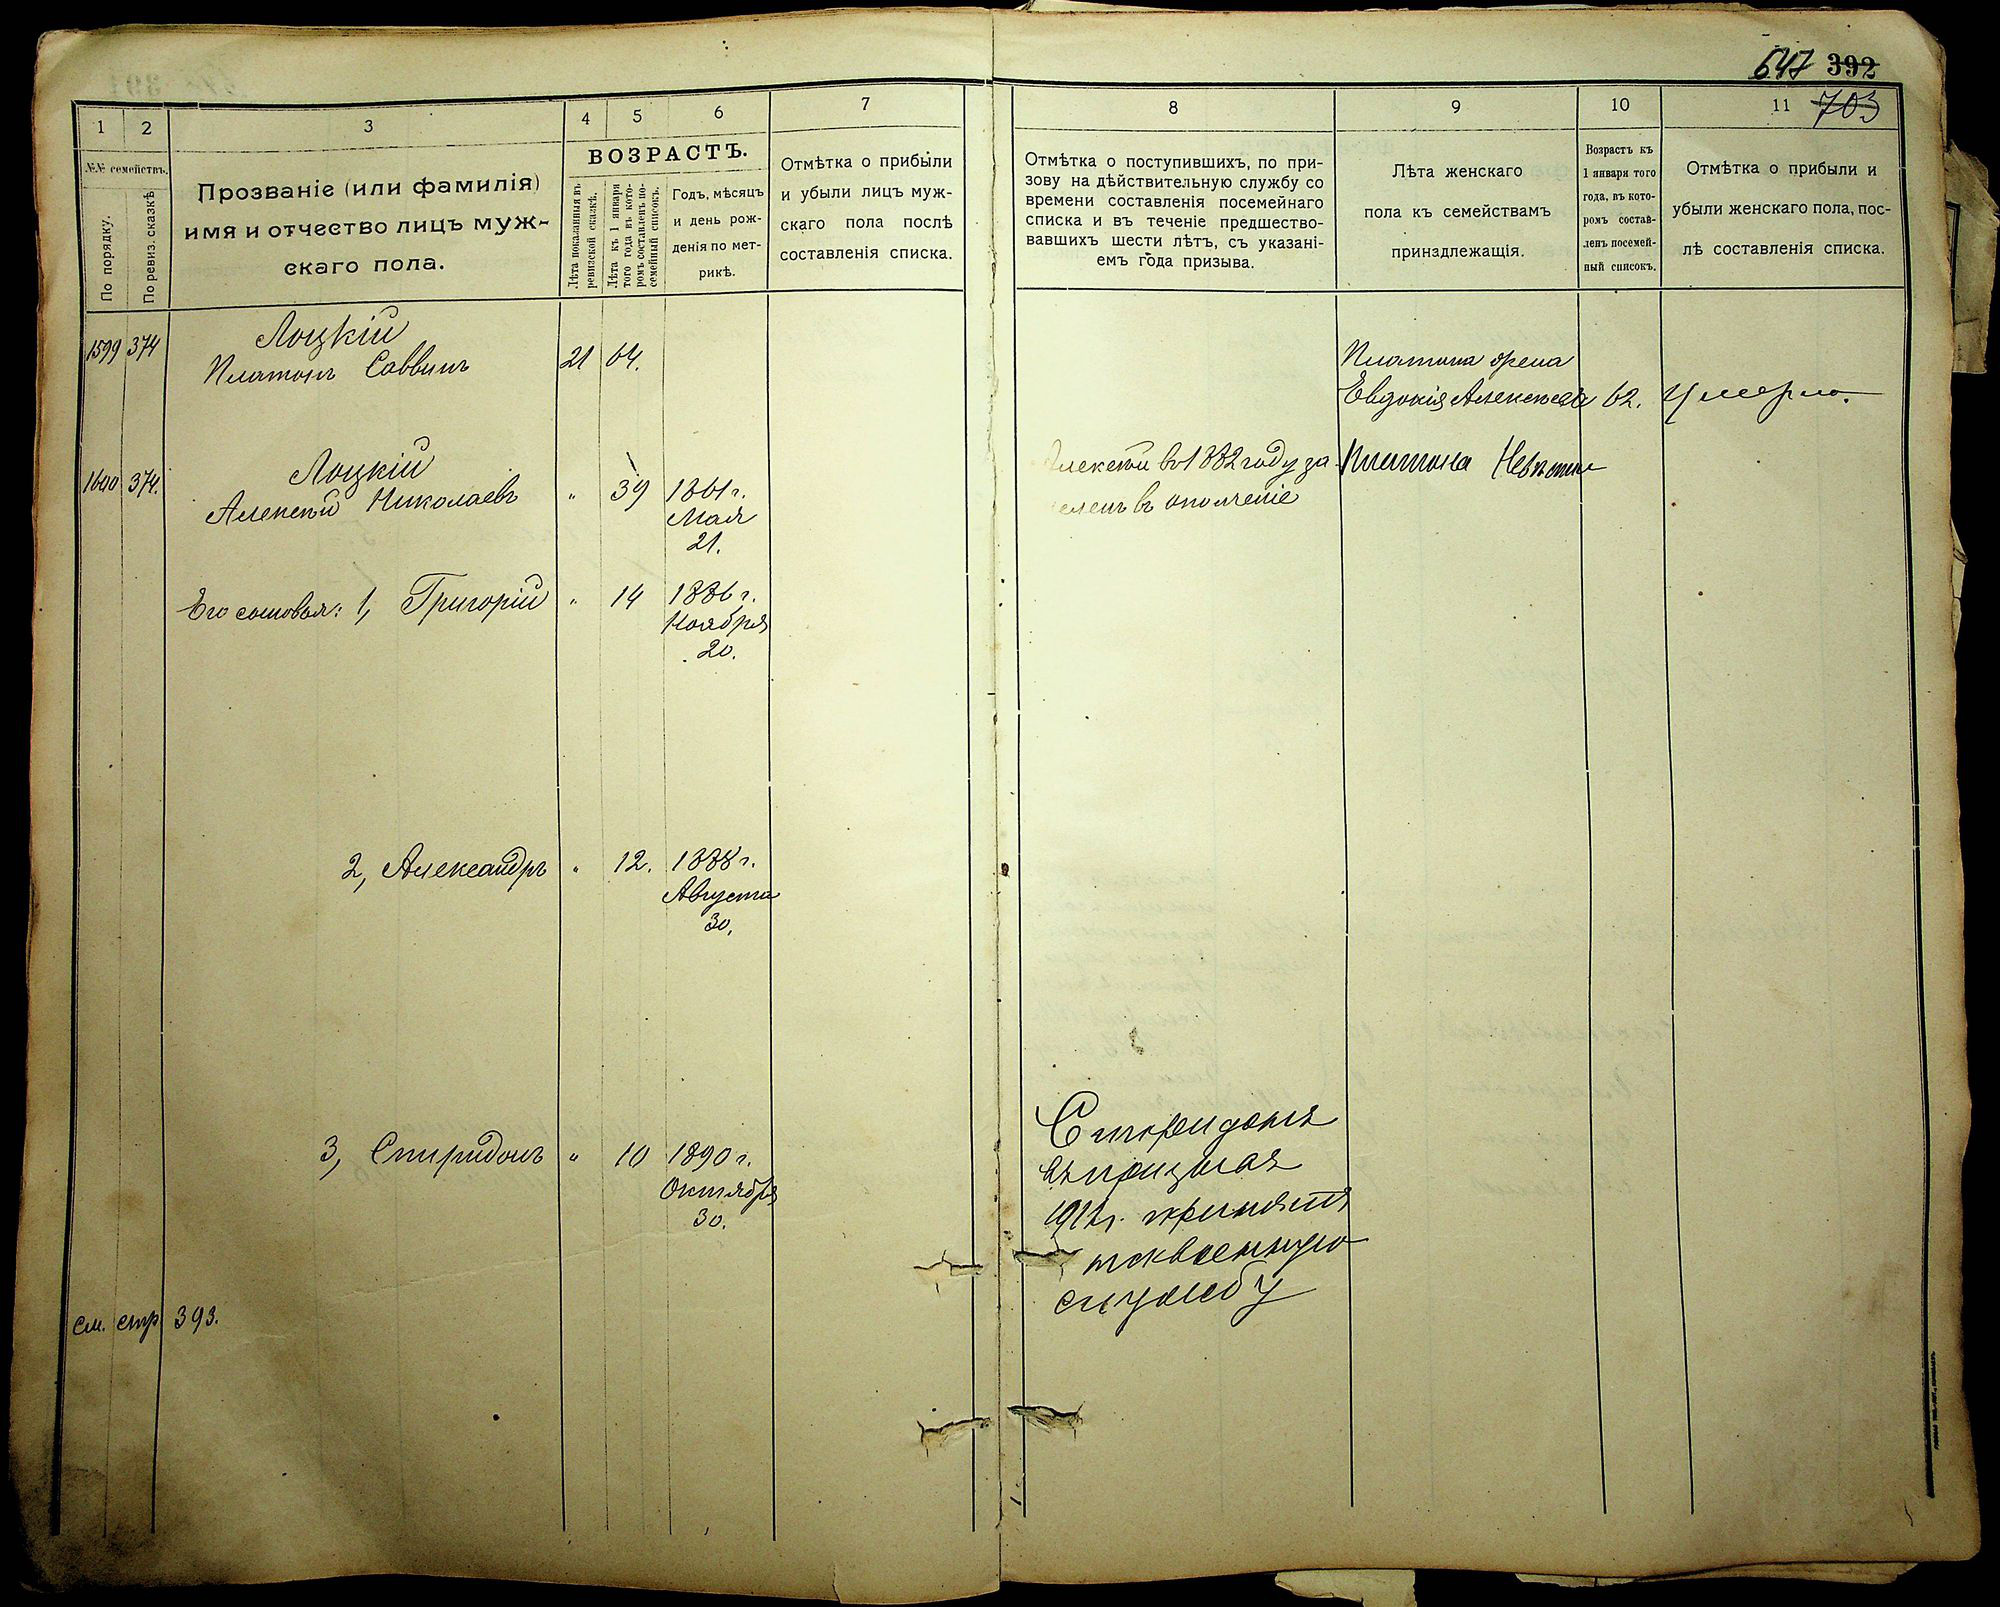 647 392
703
1 2 3 4 5 6 7
№№ семействъ.
По порядку.
По ревиз. сказкѣ
Прозваніе (или фамилія)
имя и отчество лицъ муж-
скаго пола.
ВОЗРАСТЪ.
Лѣта показанныя въ
ревизской сказкѣ.
Лѣта къ 1 января
того года въ кото-
ромъ составленъ по-
семейный списокъ.
Годъ, мѣсяцъ
и день рож-
денія по мет-
рикѣ.
Отмѣтка о прибыли
и убыли лицъ муж-
скаго пола послѣ
составленія списка.
8 9 10 11
Отмѣтка о поступившихъ, по при-
зову на дѣйствительную службу со
времени составленія посемейнаго
списка и въ теченіе предшество-
вавшихъ шести лѣтъ, съ указані-
емъ года призыва.
Лѣта женскаго
пола къ семействамъ
принадлежащія.
Возрастъ къ
1 января того
года, въ кото-
ромъ состав-
ленъ посемей-
ный списокъ.
Отмѣтка о прибыли и
убыли женскаго пола, пос-
лѣ составленія списка.
Лоцкій
1599 374 Платонъ Саввинъ 21 64.
Платона
Евдокія Алексѣева 62. Умерла.
Лоцкій
1600 374. Алексѣй Николаевъ " 39 1861 г.
Мая
21.
Алексѣй въ 1882 году за-
численъ въ ополченіе
Платона
Его сыновья: 1, Григорій " 14 1886 г.
Ноября
20.
2, Александръ " 12. 1888 г.
Августа
30.
3, Спиридонъ " 10 1890 г.
Октября
30.
Спиридонъ
въ призывъ
1911 г. принятъ
на военную
службу
см. стр 393.